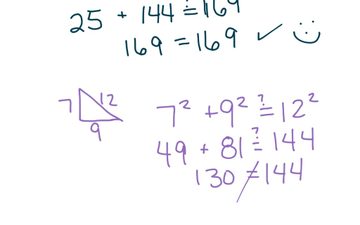 25 + 144 ≟ 169
169 = 169 ✓ ☺
7 12
9
7² + 9² ≟ 12²
49 + 81 ≟ 144
130 ≠ 144